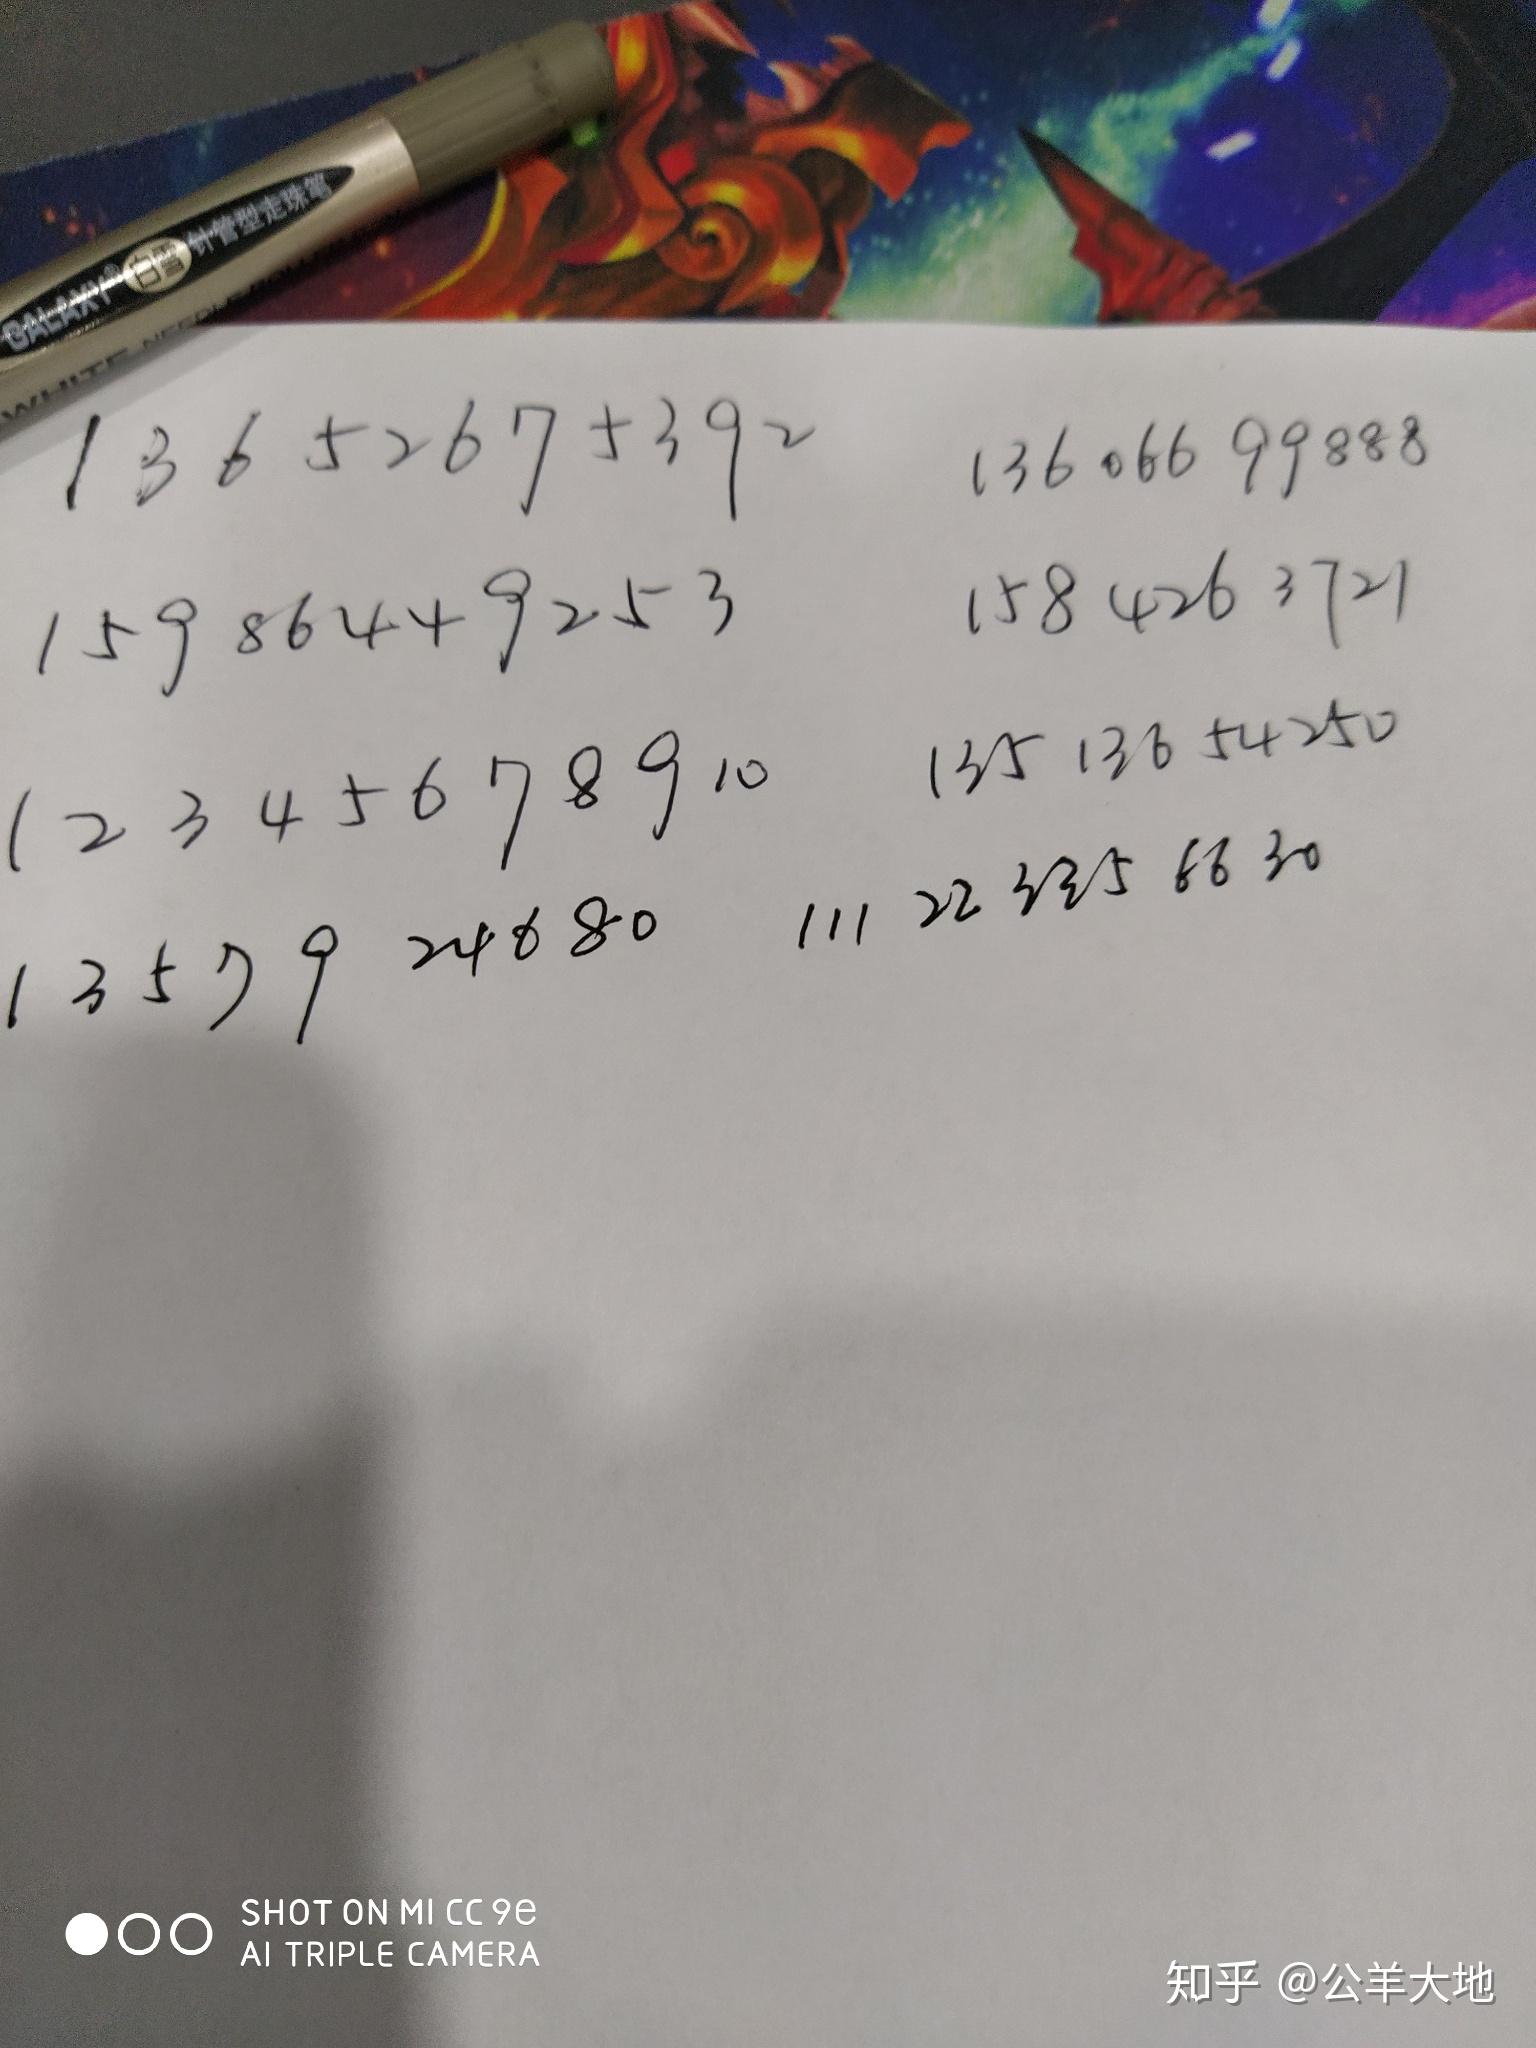 GALAXY® 白雪 针管型走珠笔
WHITE NEEDLE
13652675392 13606699888
15986449253 1584263721
12345678910 13513654250
13579 24680 111 22 335 66 30
SHOT ON MI CC 9e
AI TRIPLE CAMERA
知乎 @公羊大地